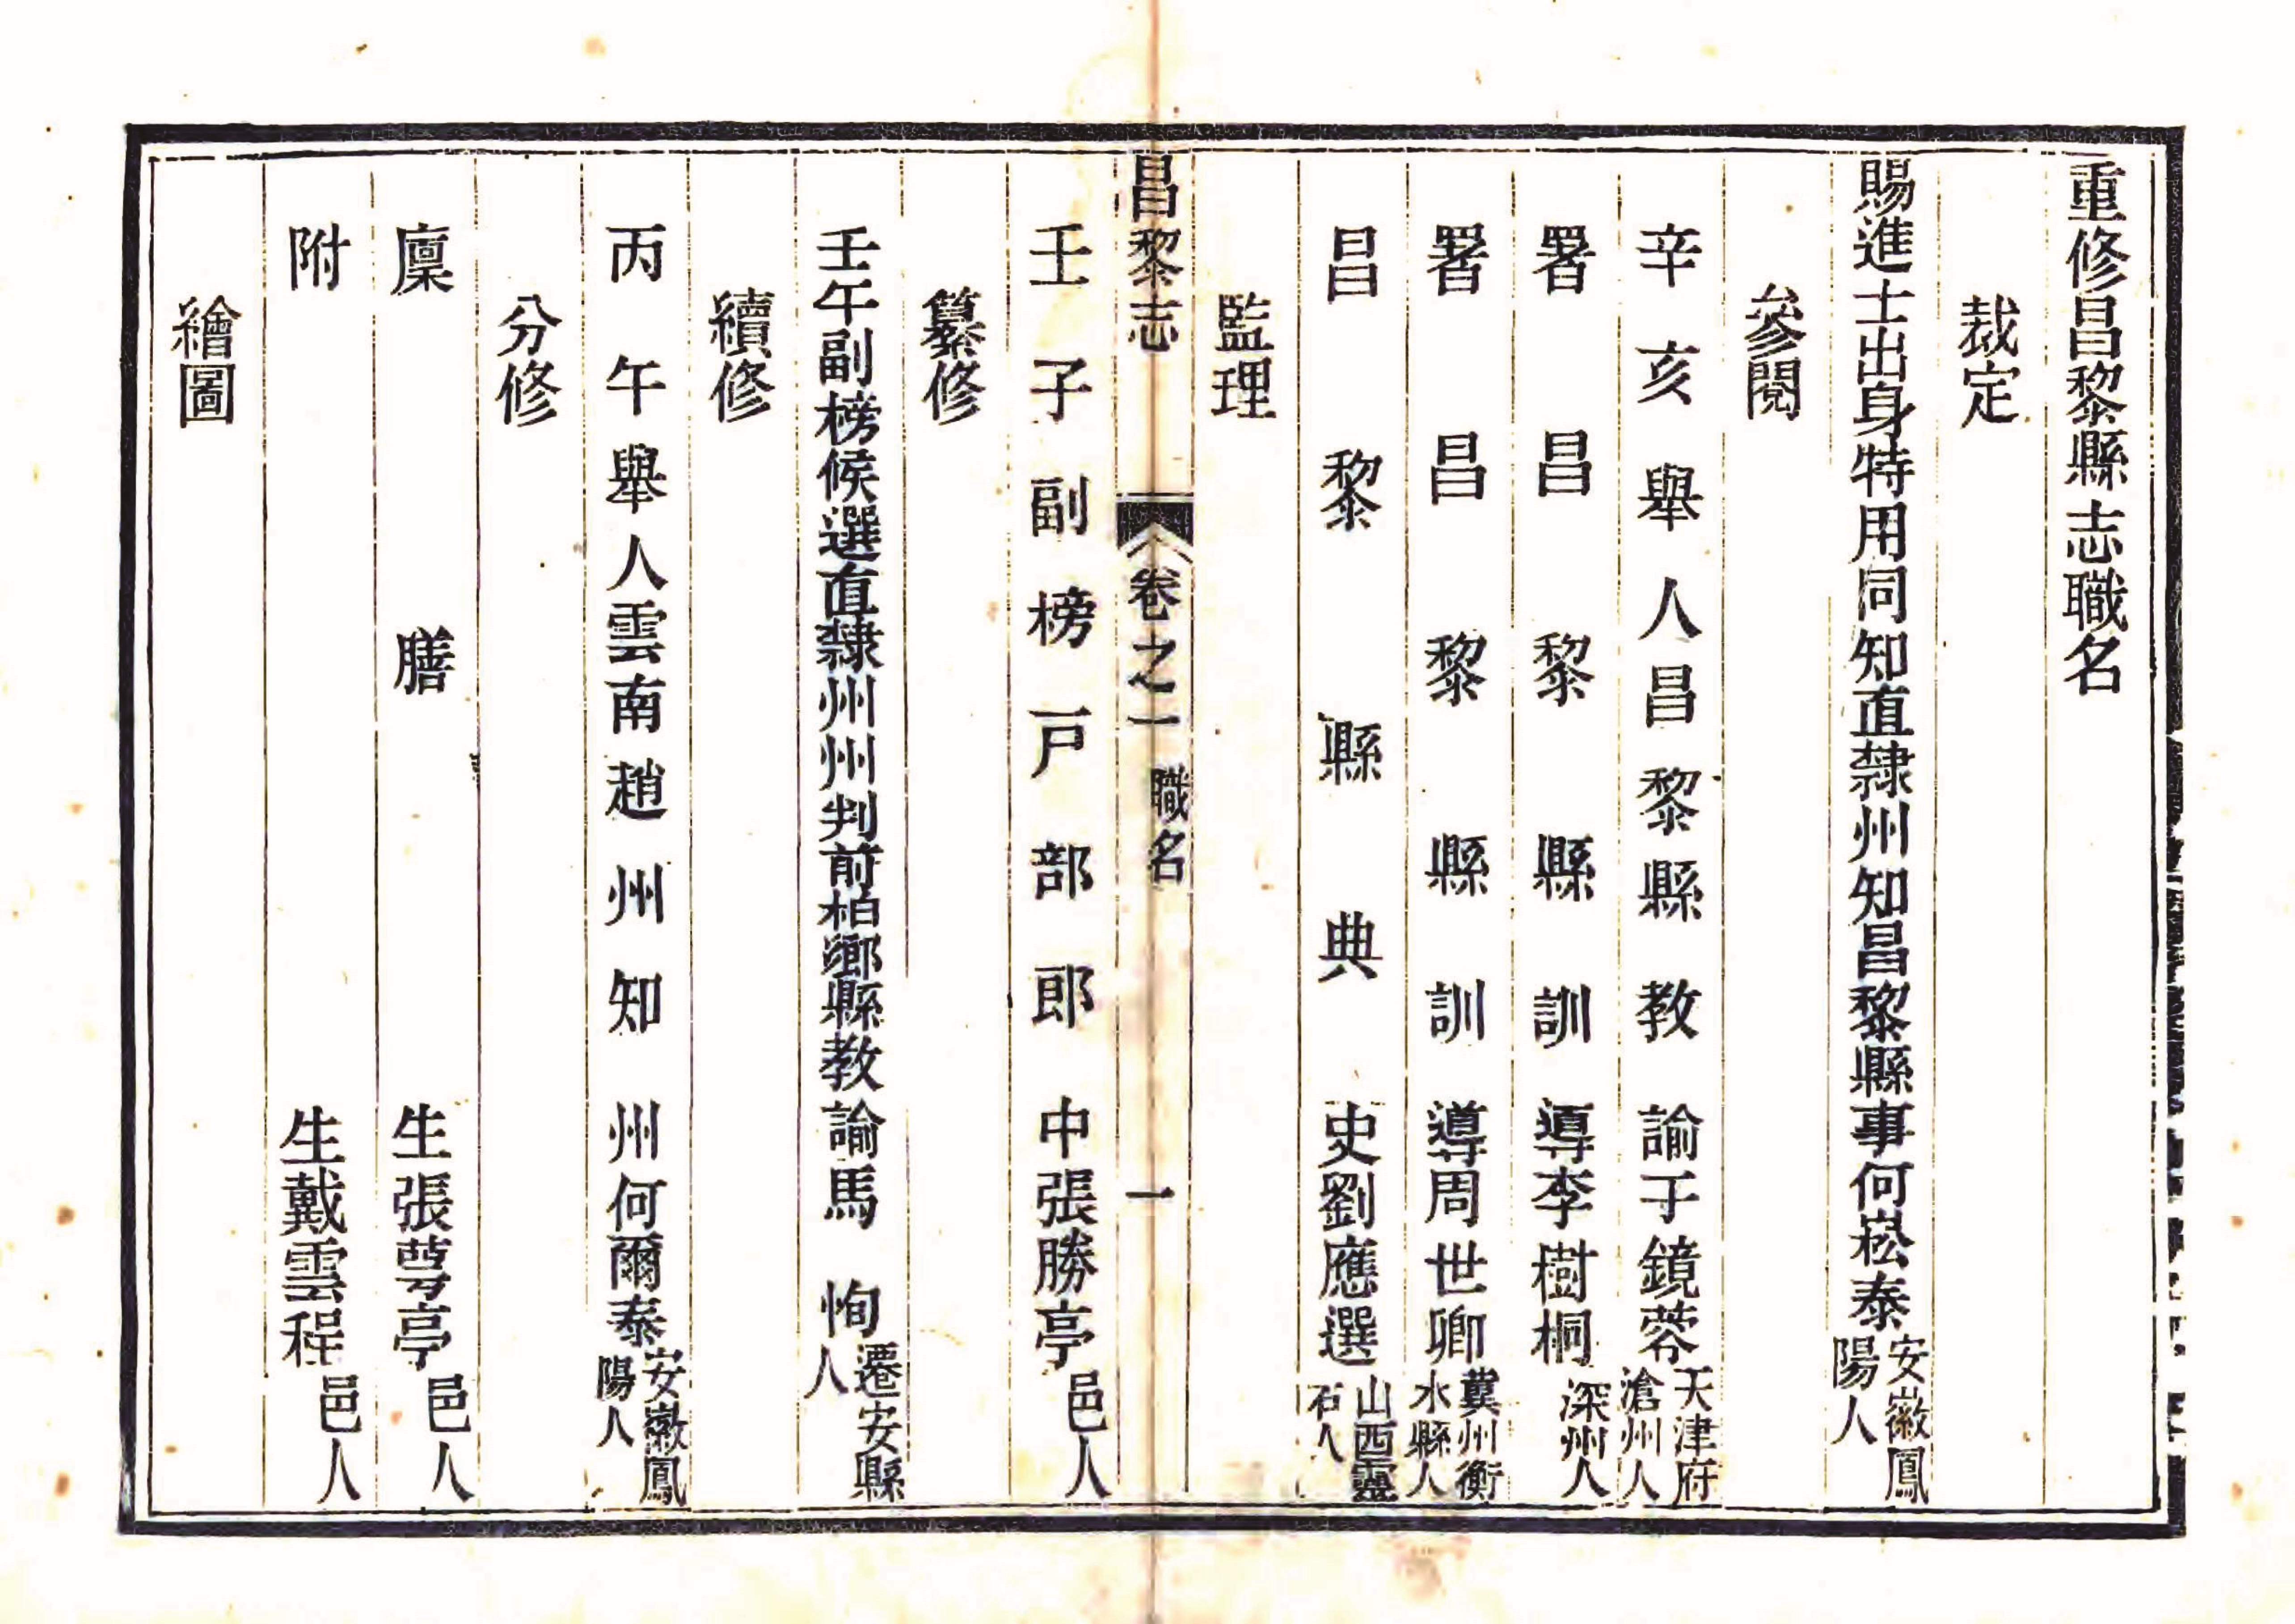 重修昌黎縣志職名
裁定
賜進士出身特用同知直隸州知昌黎縣事何崧泰安徽鳳陽人
參閱
辛亥舉人昌黎縣教諭于鏡蓉天津府滄州人
署昌黎縣訓導李樹桐深州人
署昌黎縣訓導周世卿冀州衡水縣人
昌黎縣典史劉應選山西靈石人
監理
昌黎志 卷之一 職名 一
壬子副榜戶部郎中張勝亭邑人
纂修
壬午副榜候選直隸州州判前柏鄉縣教諭馬恂遷安縣人
續修
丙午舉人雲南趙州知州何爾泰安徽鳳陽人
分修
廩膳生張萼亭邑人
附生戴雲程邑人
繪圖